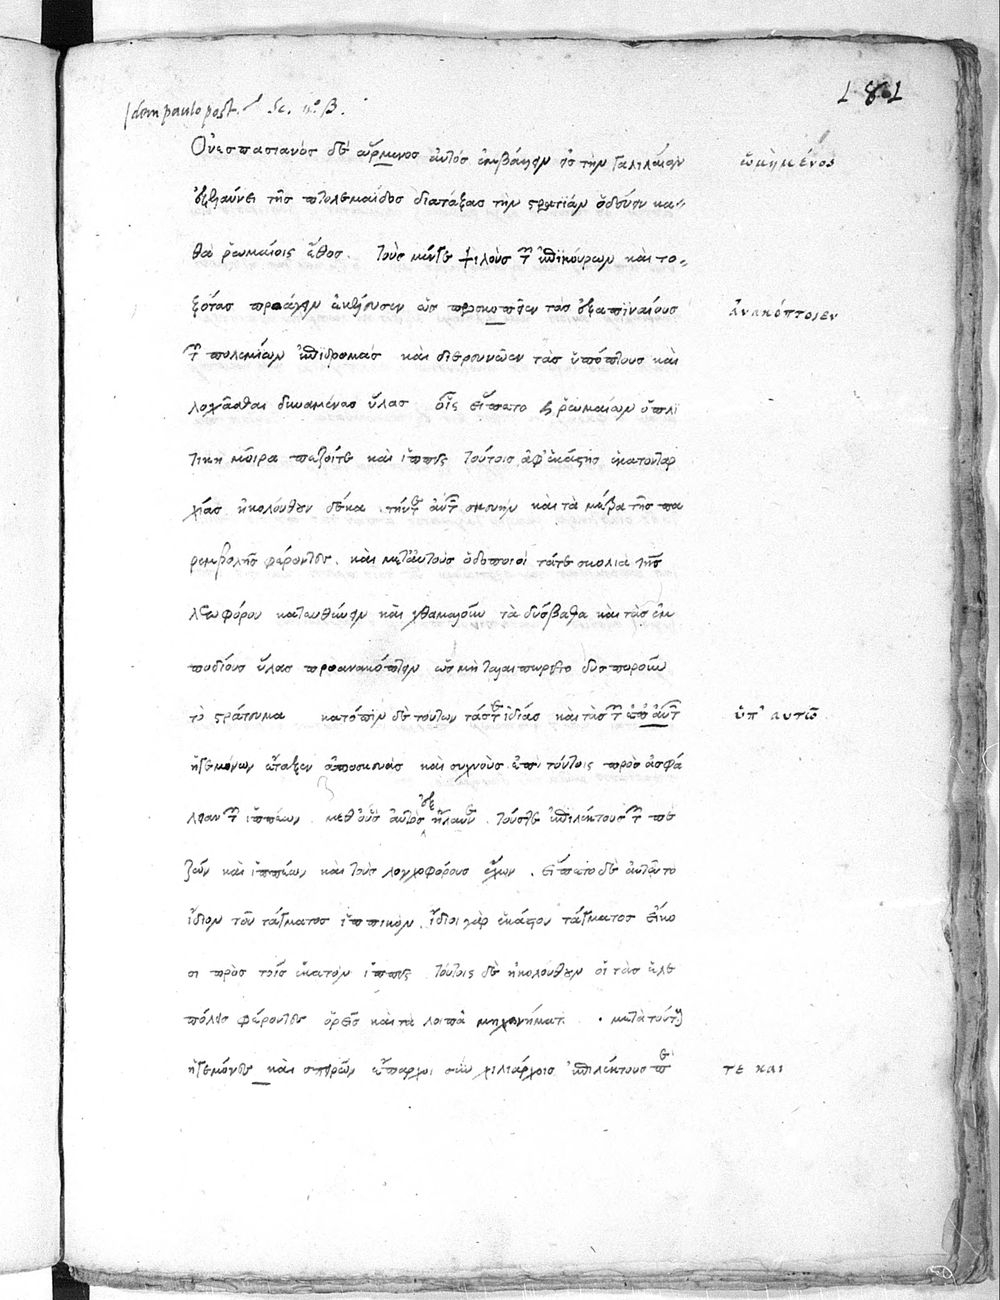 Idem paulo post. Sc. n° β.
187
Οὐεσπασιανὸς δὲ ὡρμενος αὐτὸς ἐμβάλειν εἰς τὴν Γαλιλαίαν
ὡρμημένος
ἐξελαύνει τῆς πτολεμαΐδος διατάξας τὴν στρατιὰν ὁδεύειν κα-
θὰ ῥωμαίοις ἔθος. τοὺς μέντε ψιλοὺς τῶν ἐπικούρων καὶ το-
ξότας προάγειν ἐκέλευσεν ὡς προσκοπτοιεν τὰς ἐξαπιναίους
ἀνακόπτοιεν
τῶν πολεμίων ἐπιδρομὰς καὶ διερευνῷεν τὰς ὑπόπτους καὶ
λοχᾶσθαι δυναμένας ὕλας οἷς εἵπετο καὶ ῥωμαίων ὁπλι
τικὴ μοῖρα πεζοί τε καὶ ἱππεῖς τούτοις ἀφ' ἑκάστης ἑκατονταρ
χίας ἠκολούθουν δέκα τήν τε αὐτῶν σκευὴν καὶ τὰ μέτρα τῆς πα
ρεμβολῆς φέροντες. καὶ μετ' αὐτοὺς ὁδοποιοὶ τά τε σκολιὰ τῆς
λεωφόρου κατευθύνειν καὶ χθαμαλοῦν τὰ δύσβατα καὶ τὰς ἐμ
ποδίους ὕλας προανακόπτειν ὡς μὴ ταλαιπωροῖτο δυσποροῦν
τὸ στράτευμα κατόπιν δὲ τούτων τάς τε ἰδίας καὶ τὰς τῶν ὑπὸ αὐτῶν
ὑπ' αυτῶ
ἡγεμόνων ἔταξεν ἀποσκευὰς καὶ συχνοὺς ἐπὶ τούτοις πρὸς ἀσφά
λειαν τῶν ἱππέων μεθ' οὓς αὐτὸς ἐξήλαυνε τούς τε ἐπιλέκτους τῶν πε
ζῶν καὶ ἱππέων καὶ τοὺς λογχοφόρους ἔχων. εἵπετο δὲ αὐτῶ το
ἴδιον τοῦ τάγματος ἱππικόν. ἴδιοι γὰρ ἑκάστου τάγματος εἴκο
σι πρὸς τοῖς ἑκατὸν ἱππεῖς τούτοις δὲ ἠκολούθουν οἱ τὰς ἑλε
πόλεις φέροντες ὀρεῖς καὶ τὰ λοιπὰ μηχανήματα. μετὰ τούτους
ἡγεμόνες καὶ σπειρῶν ἔπαρχοι σὺν χιλιάρχοις ἐπιλέκτους πε
τε και